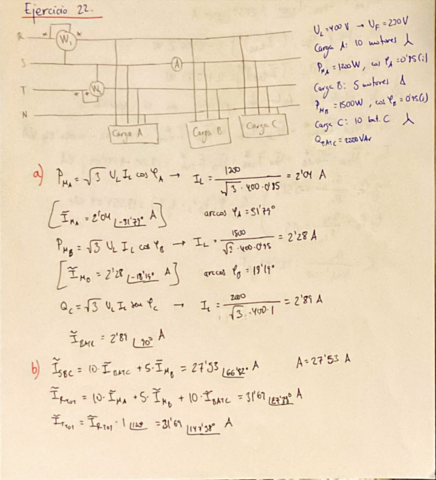 Ejercicio 22.
R
S
T
N
W₁
W₂
A
Carga A
Carga B
Carga C
U_L = 400 V → U_F = 230 V
Carga A: 10 motores
P_MA = 1200 W, cos φ_A = 0'85 (i)
Carga B: 5 motores Δ
P_MB = 1500 W, cos φ_B = 0'95 (i)
Carga C: 10 bat. C
Q_BATC = 2000 VAr
a) P_MA = √3 U_L I_L cos φ_A → I_L = 1200 / (√3 · 400 · 0'85) = 2'04 A
[Ī_MA = 2'04 ∠-31'79° A] arccos φ_A = 31'79°
P_MB = √3 U_L I_L cos φ_B → I_L = 1500 / (√3 · 400 · 0'95) = 2'28 A
[Ī_MB = 2'28 ∠-18'19° A] arccos φ_B = 18'19°
Q_C = √3 U_L I_L sen φ_C → I_L = 2000 / (√3 · 400 · 1) = 2'89 A
Ī_BATC = 2'89 ∠90° A
b) Ī_SBC = 10 · Ī_BATC + 5 · Ī_MB = 27'53 A A = 27'53 A
Ī_RTOT = 10 · Ī_MA + 5 · Ī_MB + 10 · Ī_BATC = 31'67 A
Ī_TTOT = Ī_RTOT · 1 = 31'67 A